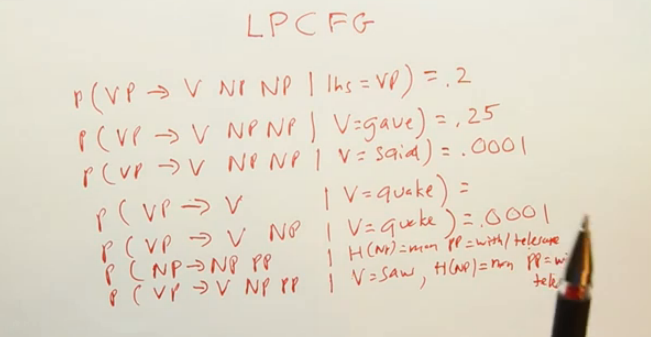 LPCFG
P(VP → V NP NP | lhs = VP) = .2
P(VP → V NP NP | V=gave) = .25
P(VP → V NP NP | V= said) = .0001
P(VP → V | V=quake) =
P(VP → V NP | V= quake) = .0001
P(NP → NP PP | H(NP)=man PP=with/telescope
P(VP → V NP PP | V=saw, H(NP)=man PP=wi
tele